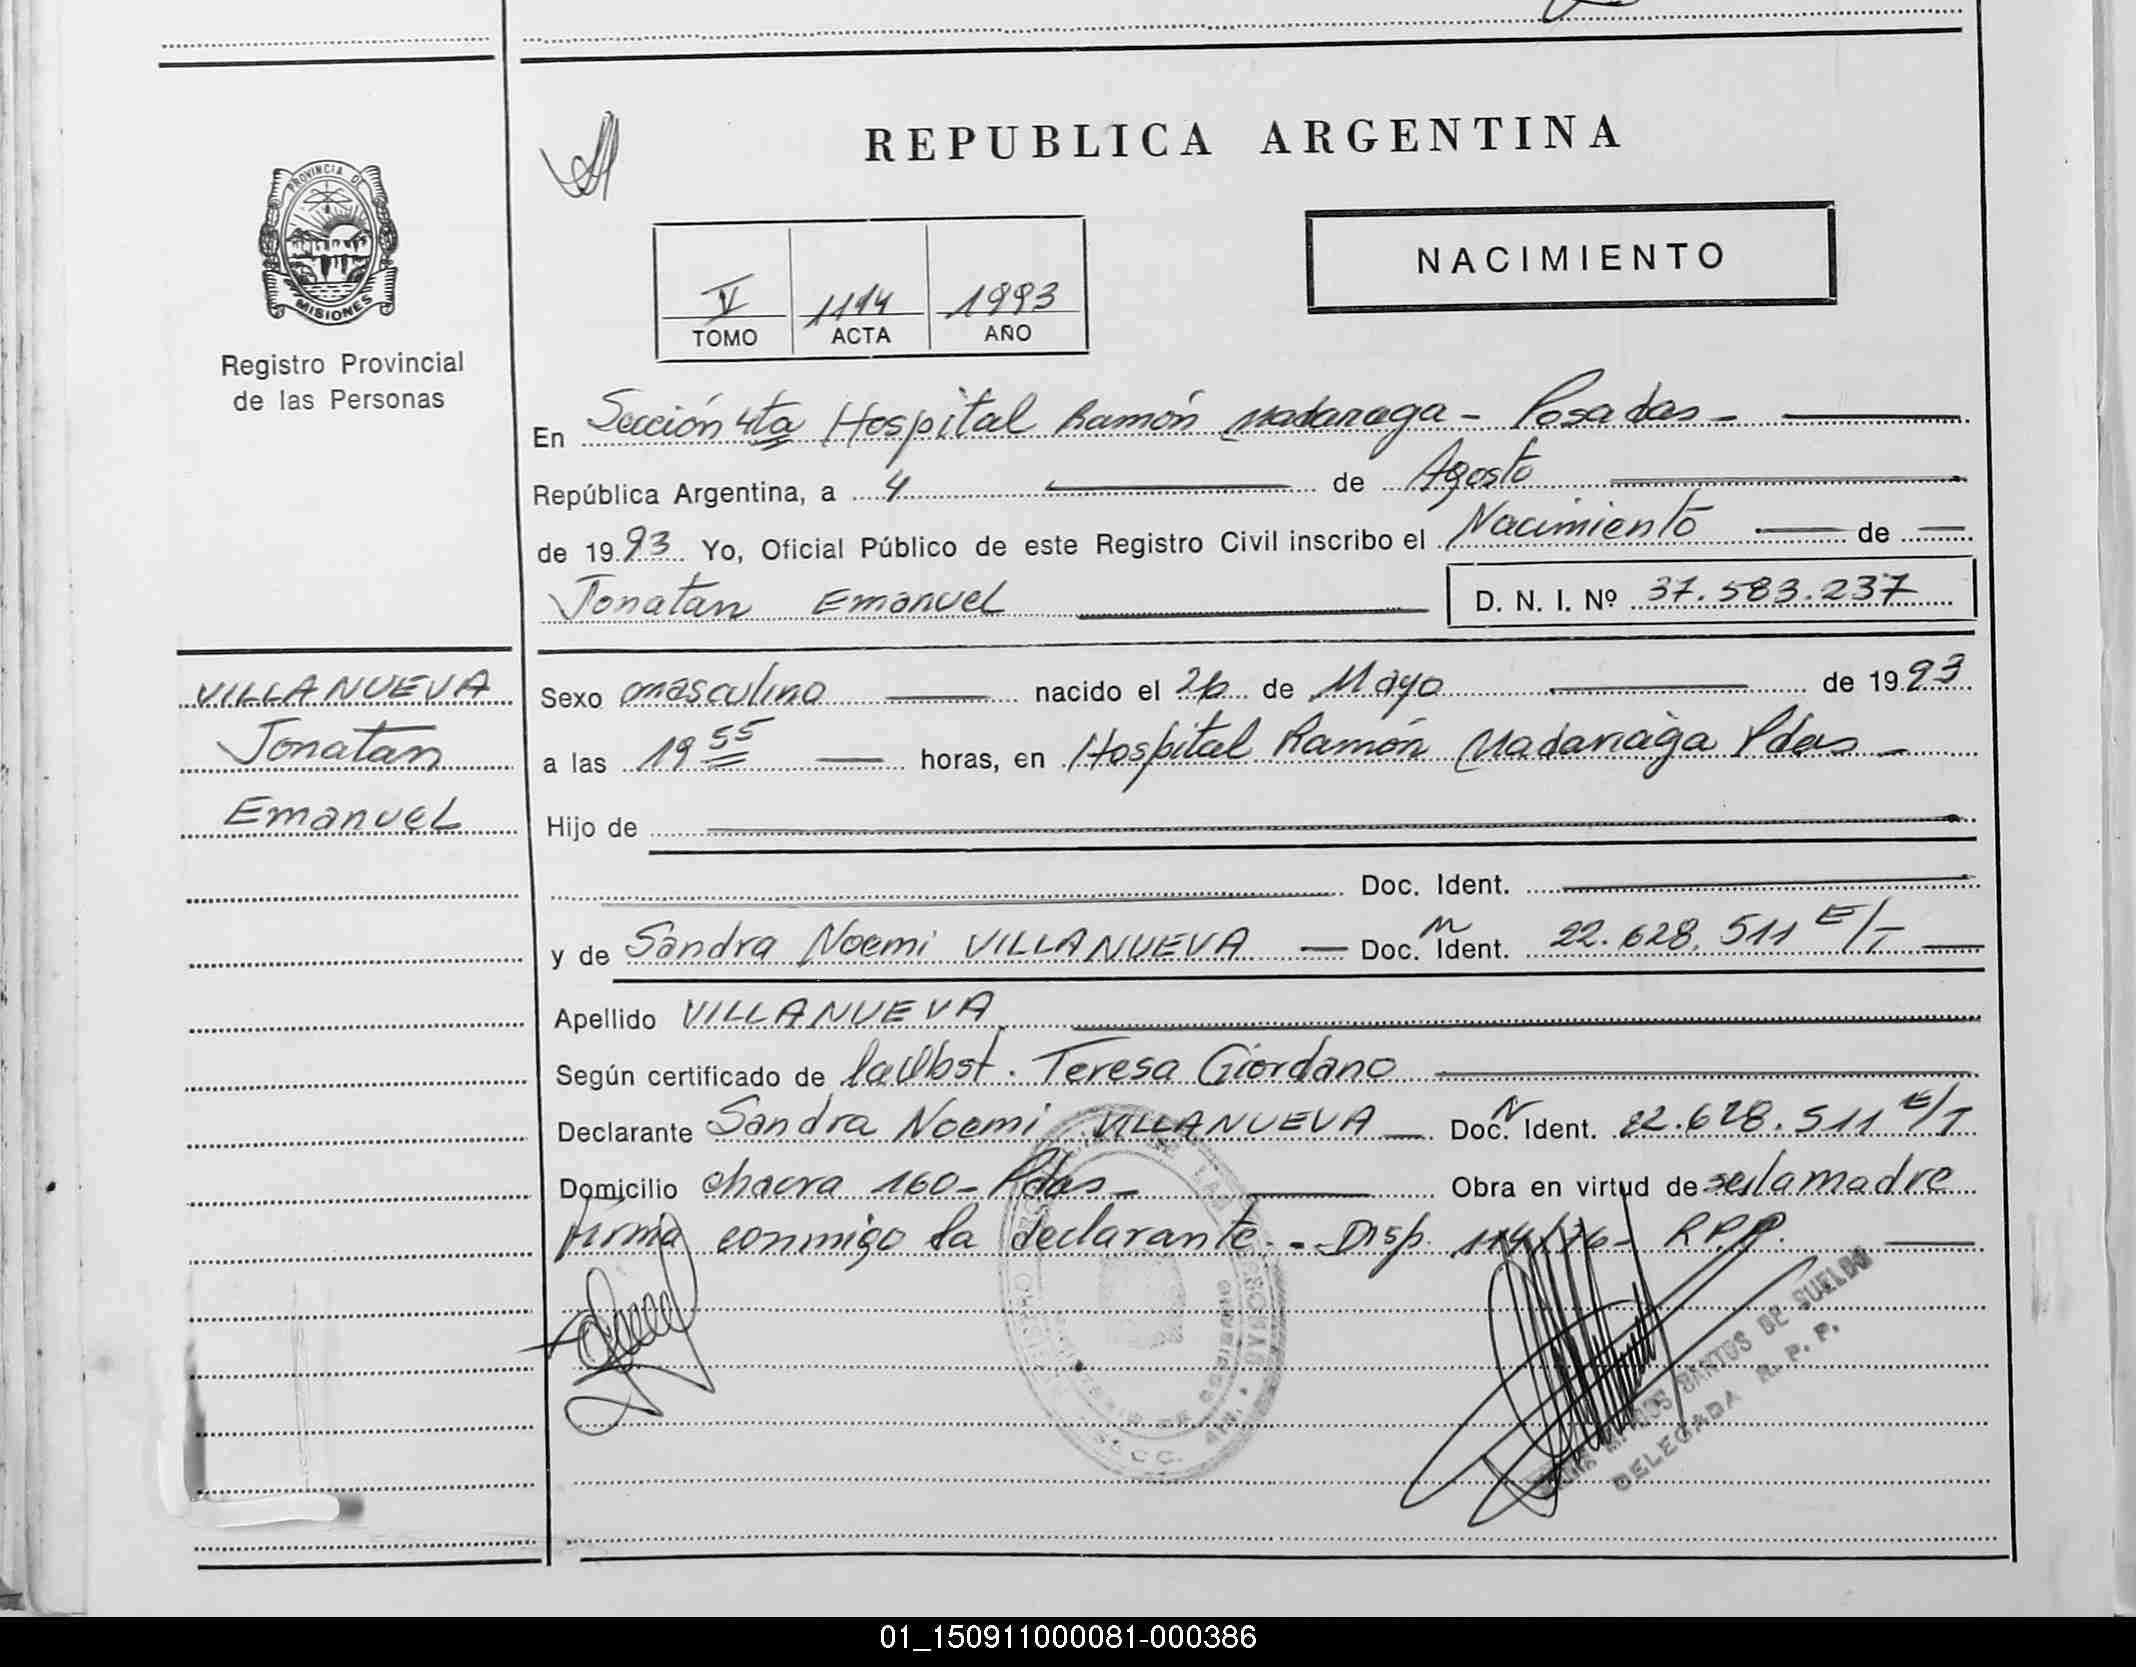 REPUBLICA ARGENTINA
PROVINCIA DE
MISIONES
Registro Provincial
de las Personas
NACIMIENTO
V 1114 1993
TOMO ACTA AÑO
En Sección 4ta Hospital Ramón Madariaga - Posadas -
República Argentina, a 4 de Agosto
de 1993 Yo, Oficial Público de este Registro Civil inscribo el Nacimiento de
Jonatan Emanuel D. N. I. Nº 37.583.237
VILLANUEVA
Jonatan
Emanuel
Sexo masculino nacido el 26 de Mayo de 1993
a las 19 55 horas, en Hospital Ramón Madariaga Pdas -
Hijo de
Doc. Ident.
y de Sandra Noemi VILLANUEVA - Doc. N Ident. 22.628.511 E/T
Apellido VILLANUEVA
Según certificado de la Obst. Teresa Giordano
Declarante Sandra Noemi VILLANUEVA Doc. N Ident. 22.628.511 E/T
Domicilio chacra 160 - Pdas - Obra en virtud de ser la madre
firma conmigo la declarante. - Disp. 114/76 - R.P.P.
SANTOS DE SUELDO
DELEGADA R. P. P.
01_150911000081-000386